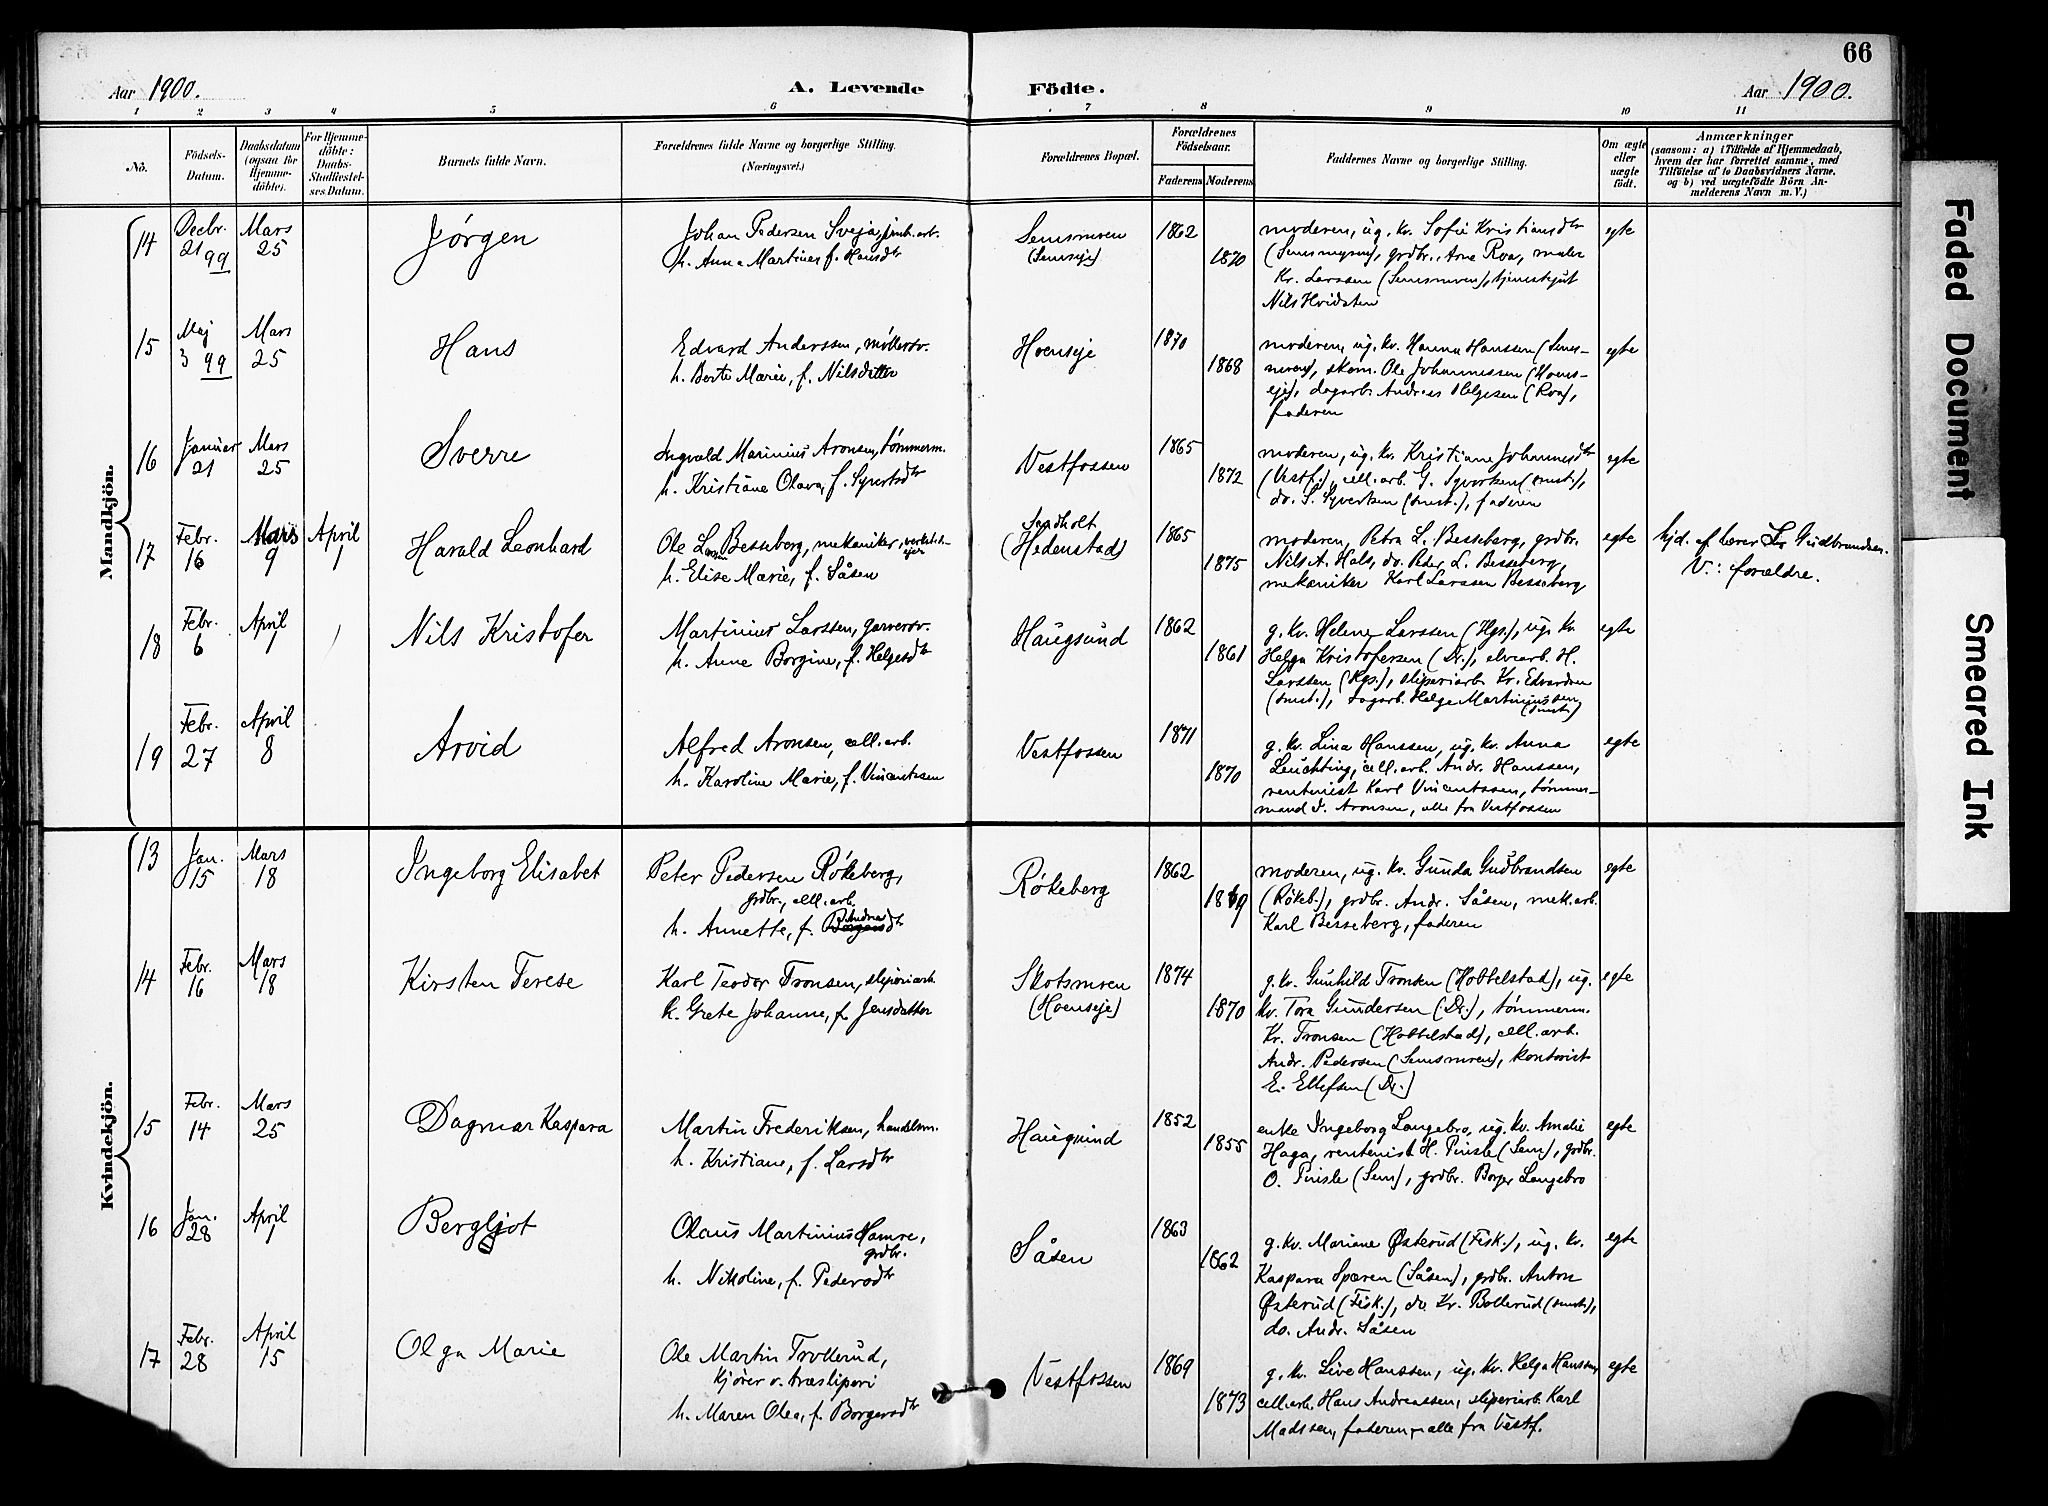 66
Aar 1900.
A. Levende Födte.
Aar 1900.
1 2 3 4 5 6 7 8 9 10 11
No.
Födsels-
Datum.
Daabsdatum
(ogsaa for
Hjemme-
döbte).
For Hjemme-
döbte:
Daabs-
Stadfæstel-
ses Datum.
Barnets fulde Navn.
Forældrenes fulde Navne og borgerlige Stilling.
(Næringsvei.)
Forældrenes Bopæl.
Forældrenes
Födselsaar.
Faderens
Moderens
Faddernes Navne og borgerlige Stilling.
Om ægte
eller
uægte
födt.
Anmærkninger
(saasom: a) i Tilfælde af Hjemmedaab,
hvem der har forrettet samme, med
Tilföielse af to Daabsvidners Navne,
og b) ved uægtefödte Börn An-
melderens Navn m. V.)
Mandkjön.
14
Decbr.
21 99
Mars
25
Jørgen
Johan Pedersen Sveja, jernb.arb.
h. Anna Martines f. Hansdtr
Semsmoen
(Semseje)
1862
1870
moderen, ug. kv. Sofie Kristiansdtr
(Semsmyren), grdbr. Arne Roa, maler
Kr. Larssen (Semsmoen), tjenestegut
Nils Hvidsten
egte
15
Maj
3 99
Mars
25
Hans
Edvard Anderssen, møllersv.
h. Berte Marie, f. Nilsdatter
Hoenseje
1870
1868
moderen, ug. kv. Hanna Hanssen (Sems-
moen), skom. Ole Johannessen (Hoens-
eje), dagarb. Andreas Helgesen (Roa),
faderen
egte
16
Januar
21
Mars
25
Sverre
Ingvald Marinius Aronsen, tømmerm.
h. Kristiane Olava, f. Syvertsdtr
Vestfossen
1865
1872
moderen, ug. kv. Kristiane Johannesdtr
(Vestf.), cell.arb. G. Syvertsen (smst.),
do. S. Syvertsen (smst.), faderen
egte
17
Febr.
16
Mars
9
April
1
Harald Leonhard
Ole Larsen Besseberg, mekaniker, verksted-
ejer
h. Elise Marie, f. Såsen
Sandholt
(Hedenstad)
1865
1875
moderen, Petra L. Besseberg, grdbr.
Nils A. Hals, do. Peder L. Besseberg,
mekaniker Karl Larssen Besseberg
egte
hjd. af lærer Gudbrandsen.
V.: forældre.
18
Febr.
6
April
1
Nils Kristofer
Martinius Larssen, garversv.
h. Anne Borgine, f. Helgesdtr
Haugsund
1862
1861
g. kv. Helene Larssen (Hgs.), ug. kv.
Helga Kristofersen (Dr.), elvearb. H.
Larssen (Hgs.), sliperiarb. Kr. Edvardsen
(smst.), dagarb. Helge Martiniussen
(smst.)
egte
19
Febr.
27
April
8
Arvid
Alfred Aronsen, cell.arb.
h. Karoline Marie, f. Vincentssen
Vestfossen
1871
1870
g. kv. Lina Hanssen, ug. kv. Anna
Leuchting, cell.arb. Andr. Hanssen,
rentenist Karl Vincentssen, tømmer-
mand I. Aronsen, alle fra Vestfossen
egte
Kvindekjön.
13
Jan.
15
Mars
18
Ingeborg Elisabet
Peter Pedersen Røkeberg,
grdbr., cell.arb.
h. Annette, f. Borgersdtr
Røkeberg
1862
1869
moderen, ug. kv. Gunda Gudbrandsen
(Røkeb.), grdbr. Andr. Såsen, mek.arb.
Karl Besseberg, faderen
egte
14
Febr.
16
Mars
18
Kirsten Terese
Karl Teodor Tronsen, sliperiarb.
h. Grete Johanne, f. Jensdatter
Skotsmoen
(Hoenseje)
1874
1870
g. kv. Gunhild Tronsen (Hobbelstad), ug.
kv. Tora Gundersen (Dr.), tømmerm.
Kr. Tronsen (Hobbelstad), cell.arb.
Andr. Pedersen (Semsmoen), kontorist
E. Ellefsen (Dr.)
egte
15
Febr.
14
Mars
25
Dagmar Kaspara
Martin Frederiksen, handelsm.
h. Kristiane, f. Larsdtr
Haugsund
1852
1855
enke Ingeborg Langebro, ug. kv. Amalie
Haga, rentenist H. Pirisle (Sem), grdbr.
O. Pirisle (Sem), grdbr. Borger Langebro
egte
16
Jan.
28
April
1
Bergljot
Olaus Martinius Hamre,
grdbr.
h. Nikoline, f. Pedersdtr
Såsen
1863
1862
g. kv. Mariane Østerud (Fisk.), ug. kv.
Kaspara Sparen (Såsen), grdbr. Anton
Østerud (Fisk.), do Kr. Bollerud (smst.),
do. Andr. Såsen
egte
17
Febr.
28
April
15
Olga Marie
Ole Martin Trollerud,
kjører v. træsliperi
h. Maren Olea, f. Borgersdtr
Vestfossen
1869
1873
g. kv. Live Hanssen, ug. kv. Helga Hanssen,
cell.arb. Hans Andreassen, sliperiarb. Karl
Madssen, faderen, alle fra Vestf.
egte
Faded Document
Smeared Ink